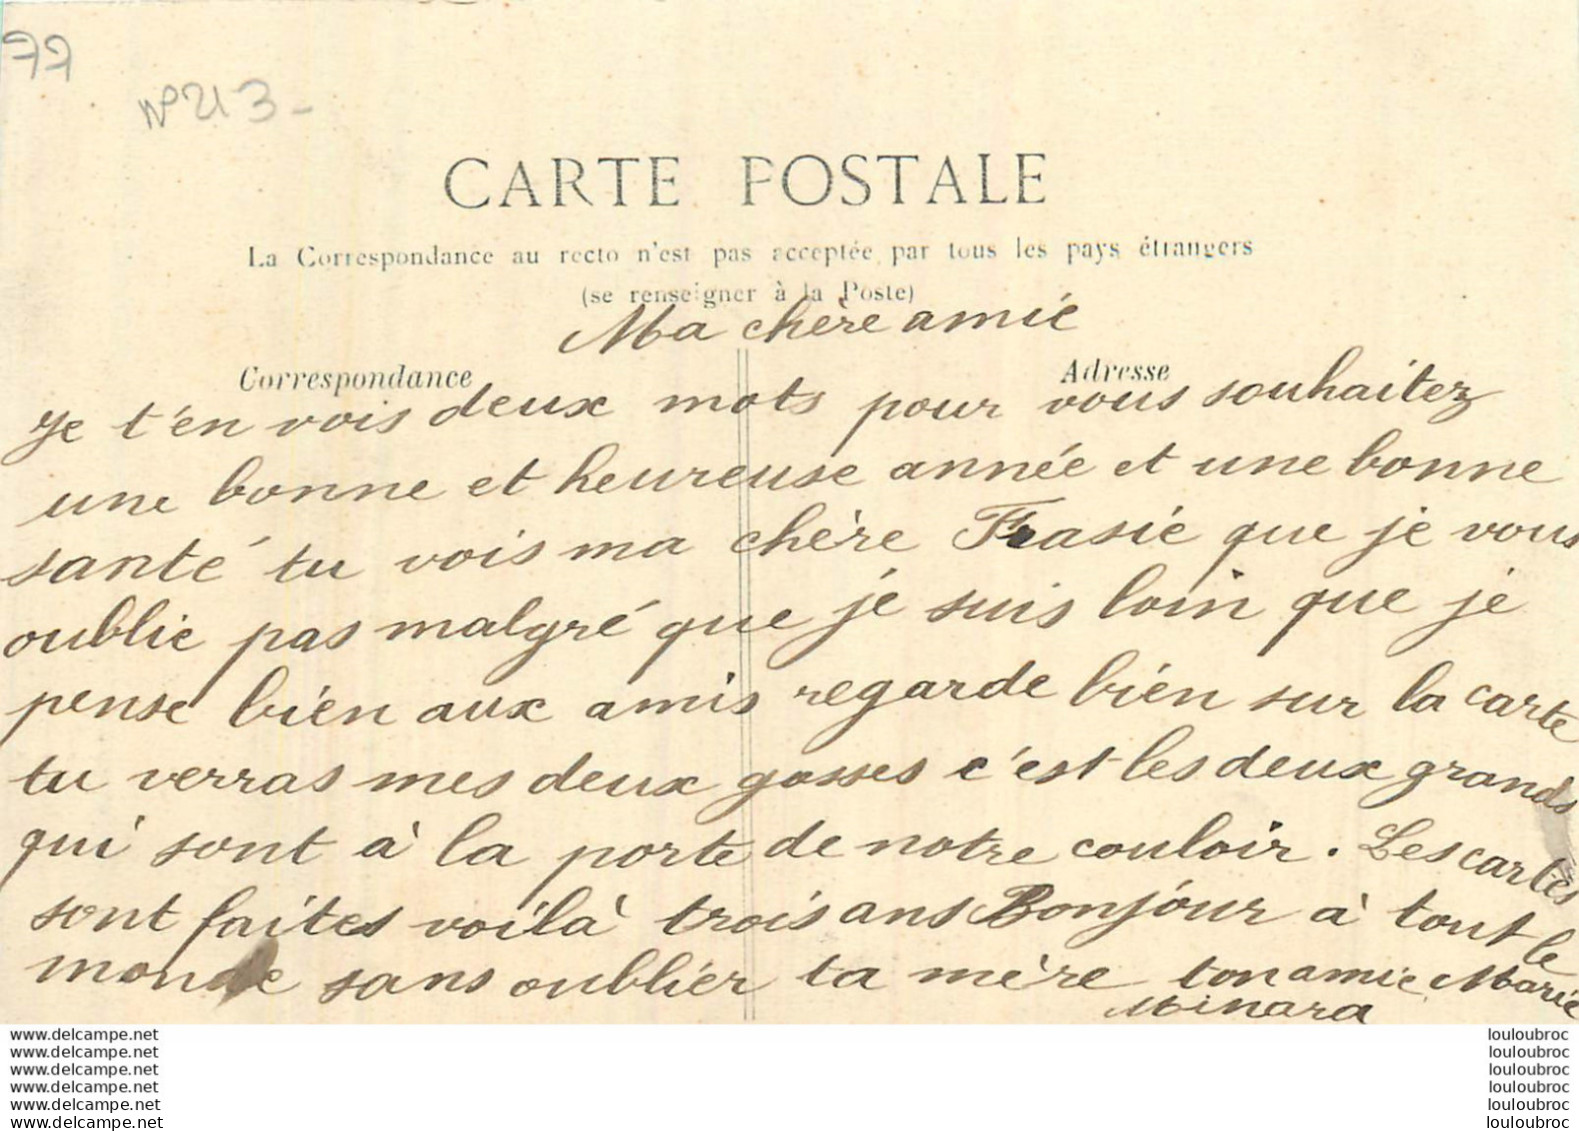 77
N° 213 -
CARTE POSTALE
La Correspondance au recto n'est pas acceptée par tous les pays étrangers
(se renseigner à la Poste)
Ma chère amie
Correspondance
Adresse
Je t'én vois deux mots pour vous souhaitez
une bonne et heureuse année et une bonne
santé tu vois ma chère Frasie que je vous
oublie pas malgré que je suis loin que je
pense bien aux amis regarde bien sur la carte
tu verras mes deux gosses c'est les deux grands
qui sont à la porte de notre couloir. Les cartes
sont faites voilà trois ans Bonjour à tout le
monde sans oublier ta mère ton amie Marie
Minara
www.delcampe.net
www.delcampe.net
www.delcampe.net
www.delcampe.net
www.delcampe.net
www.delcampe.net
louloubroc
louloubroc
louloubroc
louloubroc
louloubroc
louloubroc